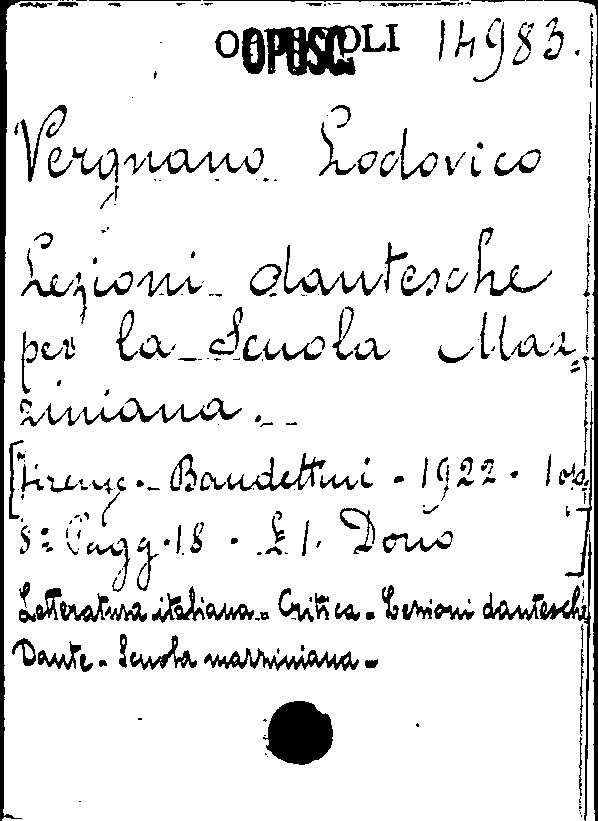 OPUSCOLI OPUSC. 14983.
Vergnano Lodovico
Lezioni dantesche
per la Scuola Maz=
ziniana.
[Firenze. Baudettini - 1922 - 1 op.
8º Pagg. 18 - £ 1. Dono]
Letteratura italiana - Critica - Lezioni dantesche
Dante - Scuola mazziniana -